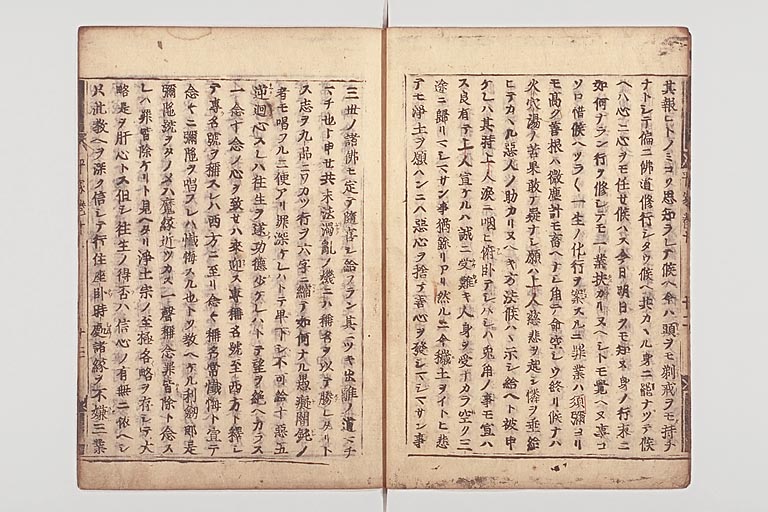 其報ヒトノミコソ思知ラレテ候ヘ今ハ頭ヲモ剃戒ヲモ持チ
ナトシテ偏ニ佛道修行シタウ候ヘ共カヽル身ニ罷ナツテ候
ヘハ心ニ心ヲモ任セ候ハス今日明日ヲモ知ヌ身ノ行末ニ
如何ナラン行ヲ修シテモ一業扶カリヌヘシトモ覺ヘヌ事コ
ソ口惜候ヘツラ〱一生ノ化行ヲ案スルニ罪業ハ須彌ヨリ
モ高ク善根ハ微塵計モ蓄ヘナシ角テ命空シウ終リ候ナハ
火穴湯ノ苦果敢テ疑ナシ願ハ上人慈悲ヲ起シ憐ヲ垂給
ヒテカヽル惡人ノ助カリヌヘキ方法候ハヽ示シ給ヘト被申
ケレハ其時上人涙ニ咽ヒ俯卧テシハシハ兎角ノ事モ宣ハ
ス良有テ上人宣ケルハ誠ニ受難キ人身ヲ受ナカラ空ク三
途ニ歸リマシマサン事猶餘リアリ然ルニ今穢土ヲイトヒ悲
テモ淨土ヲ願ハンニハ惡心ヲ捨テ善心ヲ發シマシマサン事
三世ノ諸佛モ定テ隨喜シ給フラン其ニツキ出離ノ道マチ
マチ也ト申セ共末法濁亂ノ機ニハ稱名ヲ以テ勝レタリト
ス志ヲ九品ニワカツ行ヲ六字ニ縮テ如何ナル愚癡闇鈍ノ
者モ唱フルニ便アリ罪深ケレハトテ卑下シ不可給十惡五
逆迴心スレハ往生ヲ遂功德少ケレハトテ望ヲ絶ヘカラス
一念十念ノ心ヲ致セハ來迎ス專稱名號至西方ト釋シ
テ專名號ヲ稱スレハ西方ニ至リ念々稱名常懺悔ト宣テ
念々ニ彌陀ヲ唱フレハ懺悔スル也トソ教ヘケル利劔即是
彌陀號ヲタノメハ魔縁近ツカス一聲稱念罪皆除ト念ス
レハ罪皆除ケリト見ヘタリ淨土宗ノ至極各略ヲ存シテ大
略是ヲ肝心トス但シ往生ノ得否ハ信心ノ有無ニ依ヘシ
只此教ヘヲ深ク信シテ行住座卧時處諸縁ヲ不嫌三業